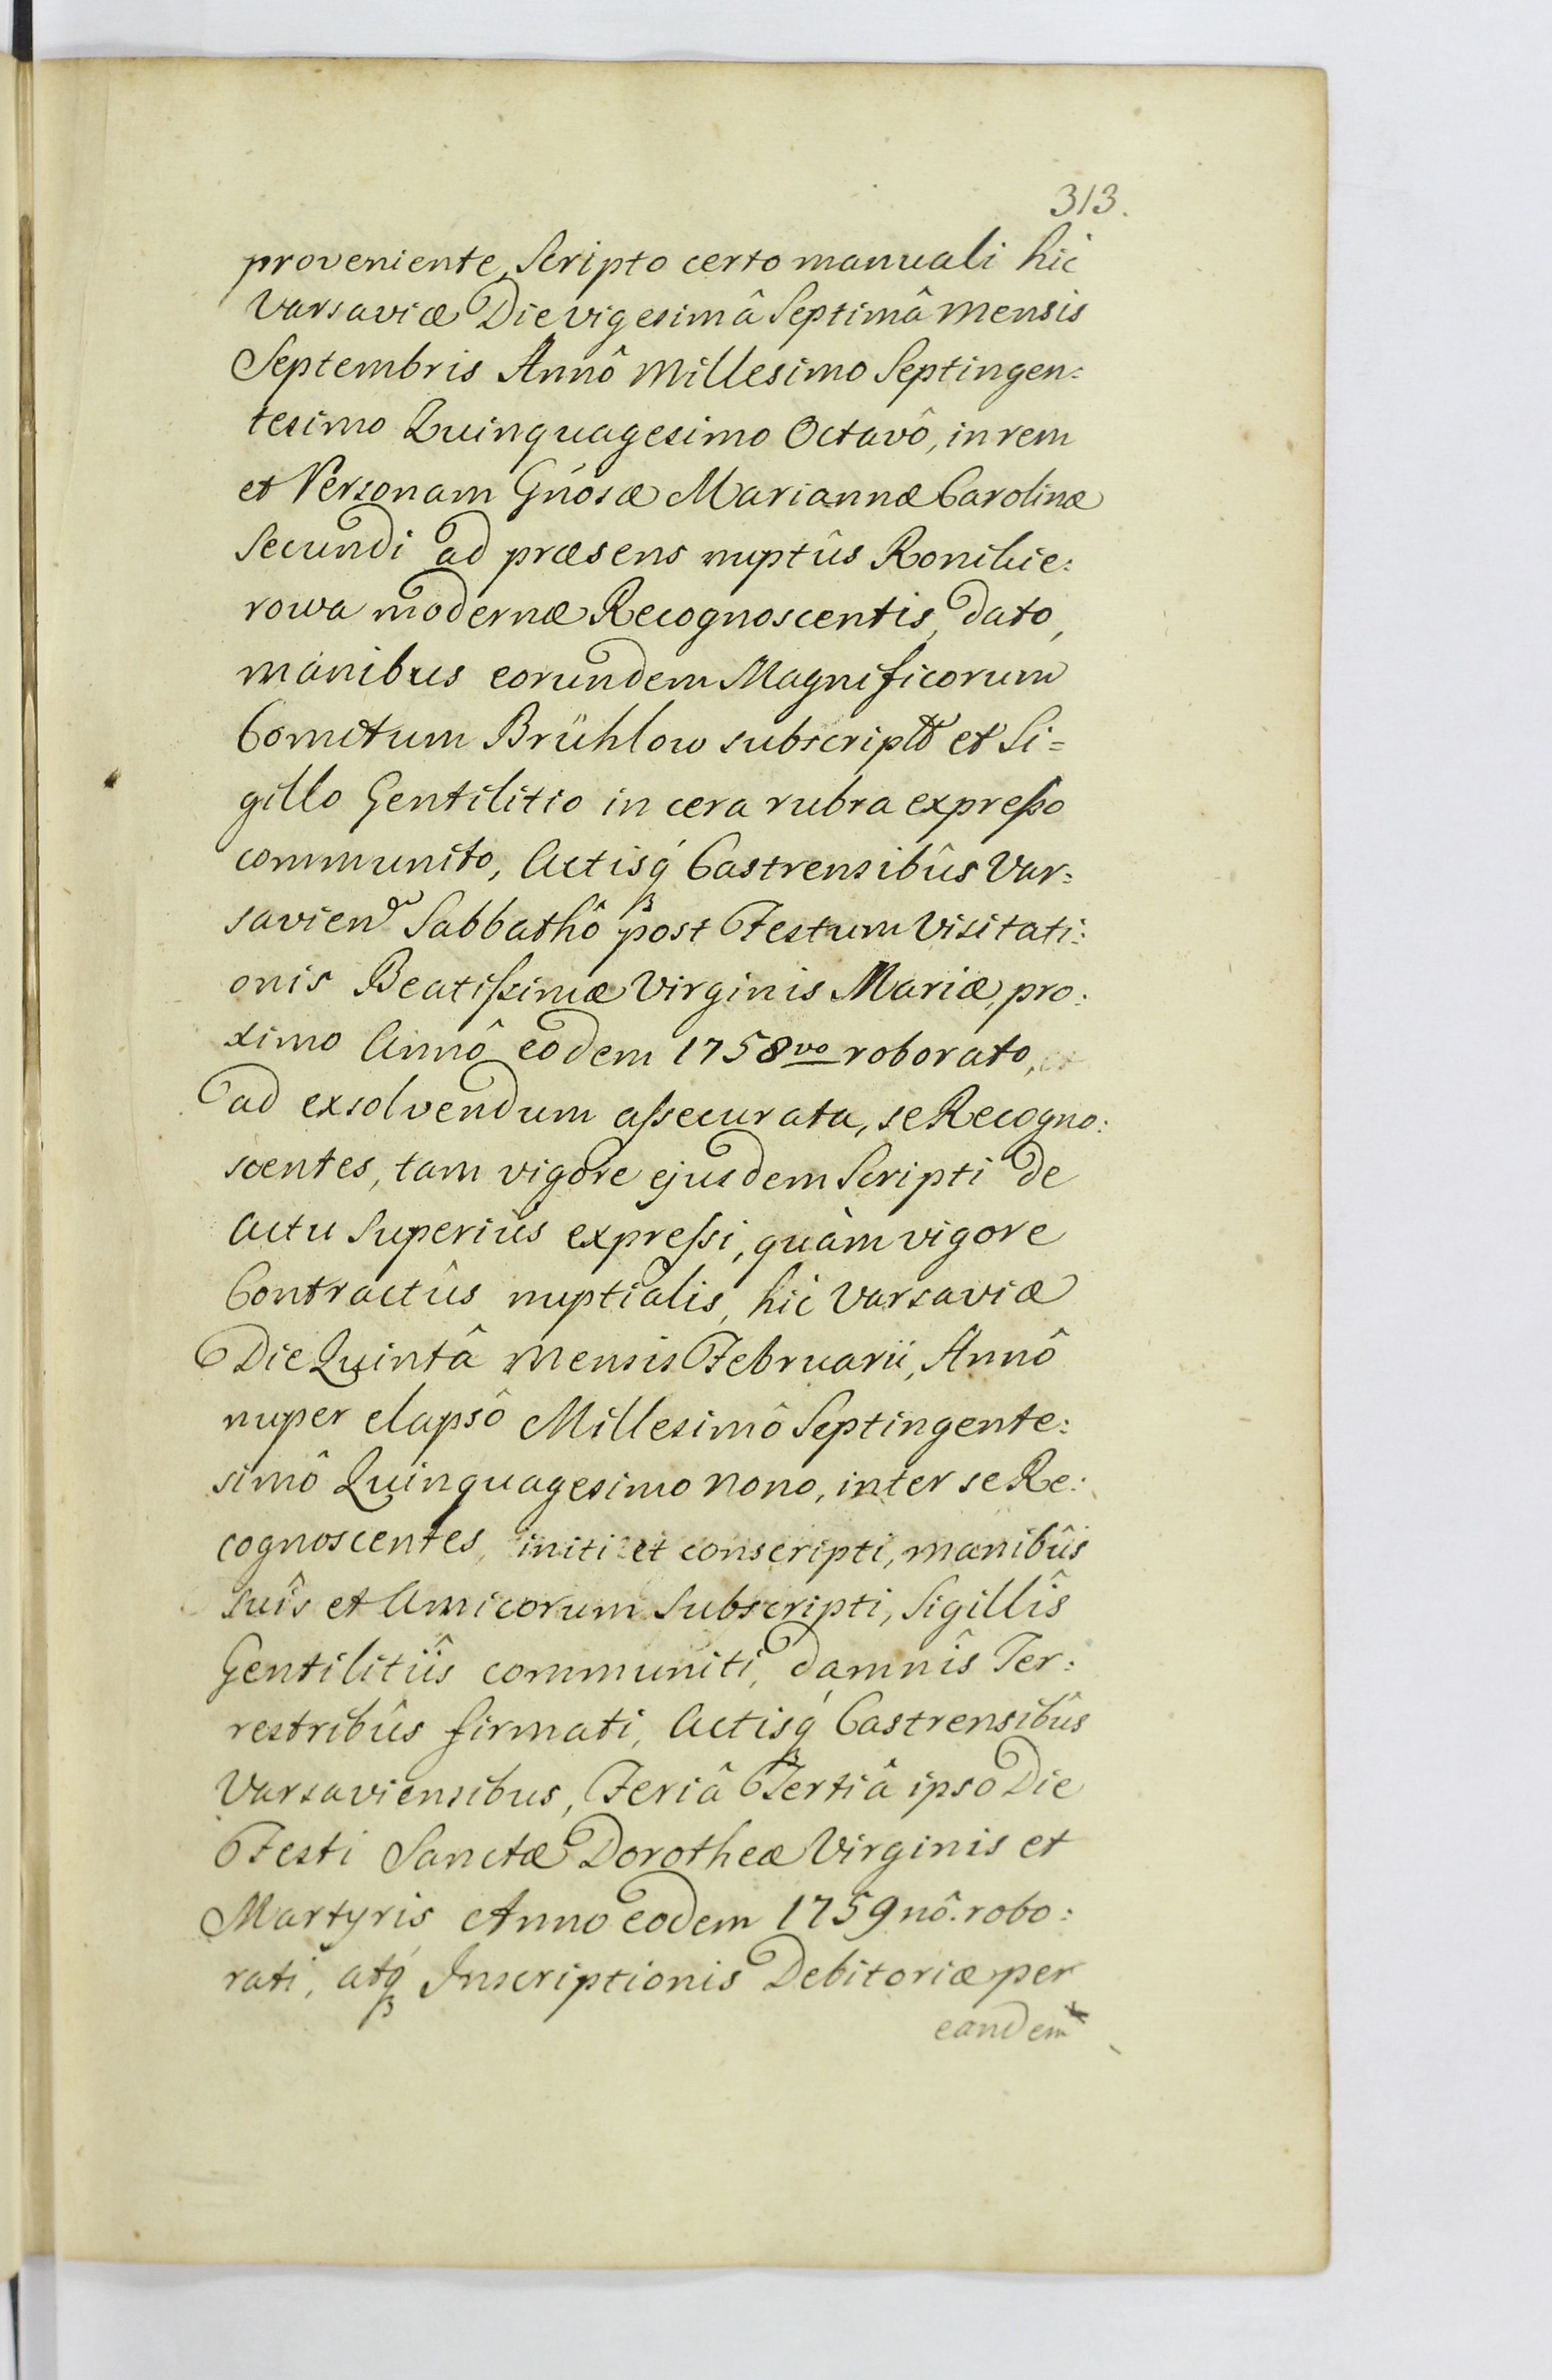 313.
proveniente, Scripto certo manuali hic
Varsaviæ Die vigesimâ Septimâ mensis
Septembris Annô Millesimo Septingen:
tesimo Quinquagesimo Octavô, in rem
et Personam Gnosæ Mariannæ Carolinæ
Secundi ad præsens nuptûs Ronikie:
rowa modernæ Recognoscentis, dato,
manibus eorundem Magnificorum
Comitum Brühlow subscripto et Si=
gillo Gentilitio in cera rubra expreſso
communito, Actisq́ Castrensibûs Var:
savien Sabbathô post Festum Visitati:
onis Beatiſsimæ Virginis Mariæ, pro:
ximo Annô eodem 1758vo roborato, et
ad exsolvendum aſsecurata, se Recogno:
scentes, tam vigore ejusdem Scripti de
Actu Superiùs expreſsi, quàm vigore
Contractûs nuptialis, hic Varsaviæ
Die Quintâ Mensis Februarii, Annô
nuper elapsô Millesimô Septingente:
simô Quinquagesimo Nono, inter se Re:
cognoscentes, initi et conscripti, manibûs
suîs et Amicorum Subscripti, Sigillîs
Gentilitiîs communiti, damnîs Ter:
restribûs firmati, Actisq́ Castrensibûs
Varsaviensibus, Feriâ Tertiâ ipso Die
Festi Sanctæ Dorotheæ Virginis et
Martyris Anno eodem 1759nô. robo:
rati, atq́ Inscriptionis Debitoriæ per
eandem